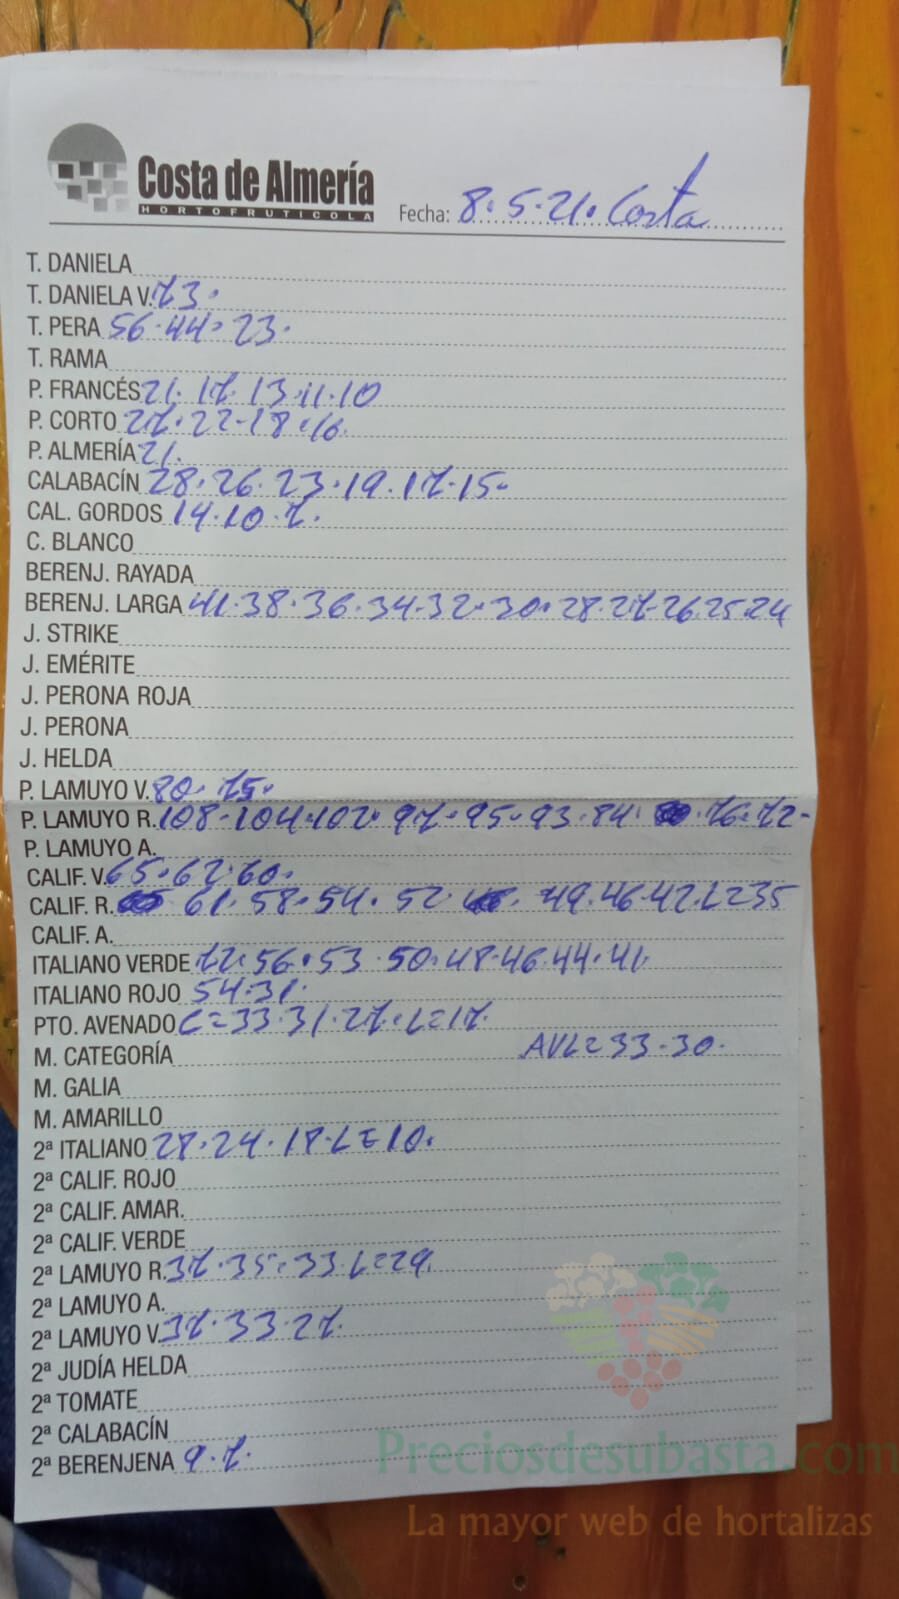 Costa de Almería
HORTOFRUTICOLA
Fecha: 8.5.21. Costa
T. DANIELA
T. DANIELA V. 73.
T. PERA 56.44.23.
T. RAMA
P. FRANCÉS 21.17.13.11.10
P. CORTO 27.22.18.16.
P. ALMERÍA 21.
CALABACÍN 28.26.23.19.17.15.
CAL. GORDOS 14.10.7.
C. BLANCO
BERENJ. RAYADA
BERENJ. LARGA 41.38.36.34.32.30.28.27.26.25.24
J. STRIKE
J. EMÉRITE
J. PERONA ROJA
J. PERONA
J. HELDA
P. LAMUYO V. 80.75.
P. LAMUYO R. 108.104.102.97.95.93.84. 76.72.
P. LAMUYO A.
CALIF. V. 65.62.60.
CALIF. R. 61.58.54.52. 49.46.42.L=35
CALIF. A.
ITALIANO VERDE 72.56.53.50.48.46.44.41.
ITALIANO ROJO 54.31.
PTO. AVENADO C=33.31.27.L=17.
M. CATEGORÍA AVL=33.30.
M. GALIA
M. AMARILLO
2ª ITALIANO 28.24.18.L=10.
2ª CALIF. ROJO
2ª CALIF. AMAR.
2ª CALIF. VERDE
2ª LAMUYO R. 37.35.33.L=29.
2ª LAMUYO A.
2ª LAMUYO V. 37.33.27.
2ª JUDÍA HELDA
2ª TOMATE
2ª CALABACÍN
2ª BERENJENA 9.7.
Preciosdesubasta.com
La mayor web de hortalizas